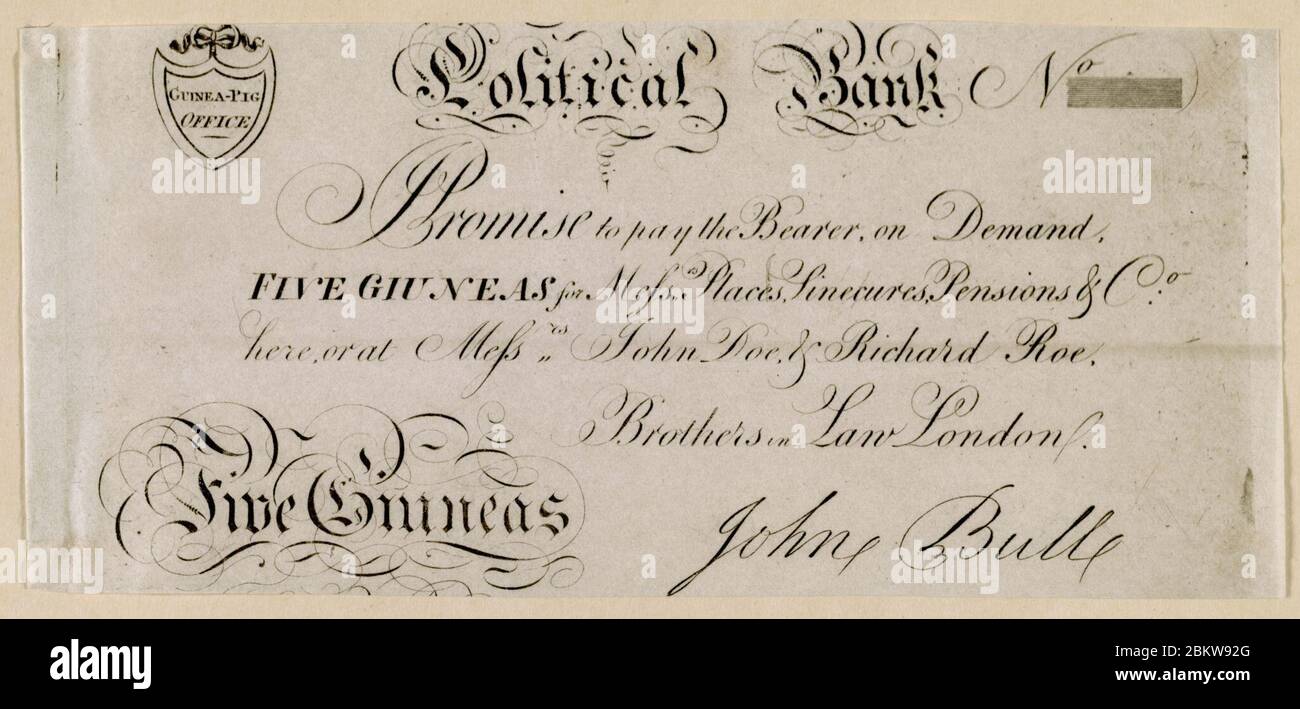 GUINEA-PIG
OFFICE
Political Bank No
I Promise to pay the Bearer, on Demand,
FIVE GIUNEAS for Messrs. Places, Sinecures, Pensions & Co.
here, or at Messrs. John Doe, & Richard Roe,
Brothers in Law London.
Five Giuneas
John Bull
alamy
alamy
Image ID: 2BKW92G
www.alamy.com